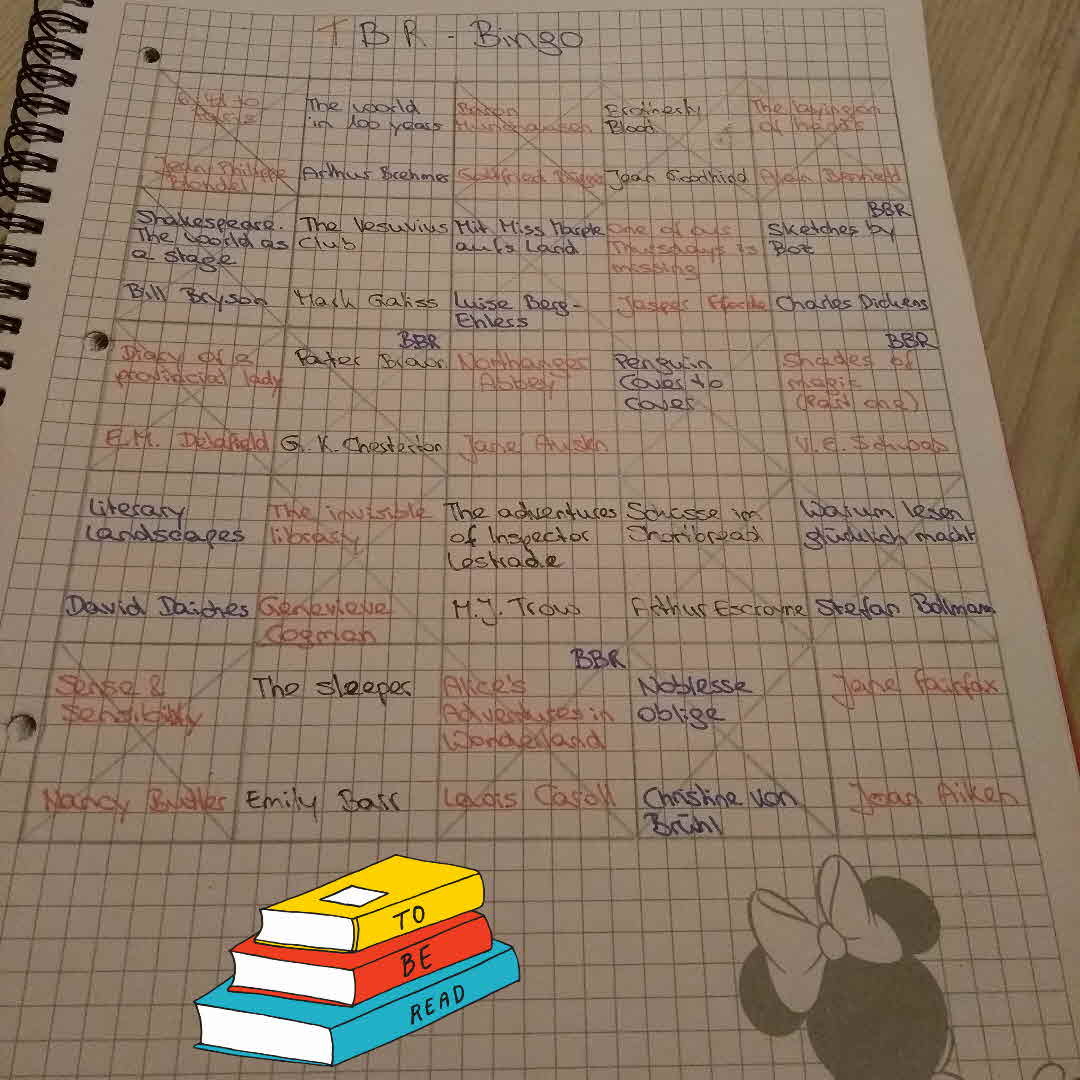 TBR - Bingo
6:41 to Paris
Jean Philippe Blondel
The world in 100 years
Arthur Brehmer
Baron
Gottfried Bürger
Brotherly Blood
Joan Goodhind
The
of
Alan Bennett
Shakespeare.
The world as
a stage
Bill Bryson
The Vesuvius
Club
Mark Gatiss
Mit Miss Marple
aufs Land
Luise Berg-
Ehlers
One of our
Thursdays is
missing
Jasper Fforde
BBR
Sketches by
Boz
Charles Dickens
Diary of a
provincial lady
E.M. Delafield
BBR
Pater Brown
G. K. Chesterton
Northanger
Abbey
Jane Austen
Penguin
Cover to
Cover
BBR
Shades of
magic
(Part one)
V.E. Schwab
Literary
Landscapes
David Daiches
The invisible
library
Genevieve
Cogman
The adventures
of Inspector
Lestrade
M.J. Trow
Schüsse im
Shortbread
Arthur Escroyne
Warum lesen
glücklich macht
Stefan Bollmann
Sense &
Sensibility
Nancy Butler
The sleeper
Emily Barr
BBR
Alice's
Adventures in
Wonderland
Lewis Caroll
Noblesse
oblige
Christine von
Brühl
Jane Fairfax
Joan Aiken
TO
BE
READ